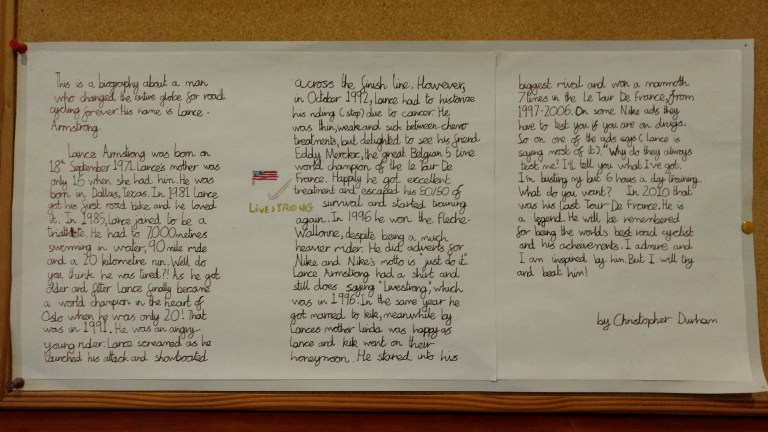 This is a biography about a man
who changed the entire globe for road
cycling forever. His name is Lance -
Armstrong.
Lance Armstrong was born on
18th September 1971. Lance's mother was
only 16 when she had him. He was
born in Dallas, Texas. In 1981 Lance
got his first road bike and he loved
it. In 1985, Lance joined to be a
triathlete. He had to 7,000 metres
swimming in water, 90 mile ride
and a 20 kilometre run. Well do
you think he was tired?! As he got
older and fitter Lance finally became
a world champion in the heart of
Oslo when he was only 20! That
was in 1991. He was an angry
young rider. Lance screamed as he
launched his attack and showboated
LIVESTRONG
across the finish line. However,
in October 1992, Lance had to historize
his riding (stop) due to cancer. He
was thin, weak and sick between chemo
treatments, but delighted to see his friend
Eddy Merckx, the great Belgian 5 time
world champion of the le Tour De
France. Happily he got excellent
treatment and escaped his 50/50 of
survival and started training
again. In 1996 he won the Fleche-
Wallonne, despite being a much
heavier rider. He did adverts for
Nike and Nike's motto is "just do it".
Lance Armstrong had a shirt and
still does saying "Livestrong", which
was in 1996. In the same year he
got married to kik, meanwhile by
Lances mother linda was happy as
Lance and kik went on their
honeymoon. He stared into his
biggest rival and won a mammoth
7 times in the Le Tour De France, from
1997-2006. On some Nike ads they
have to test you if you are on drugs.
So on one of the ads says (Lance is
saying most of it). "Why do they always
test me? I'll tell you what I've got.
I'm busting my but 6 hours a day training.
What do you want? In 2010 that
was his last Tour De France. He is
a legend. He will be remembered
for being the world's best road cyclist
and his acheivments. I admire and
I am inspired by him. But I will try
and beat him!
by Christopher Durham